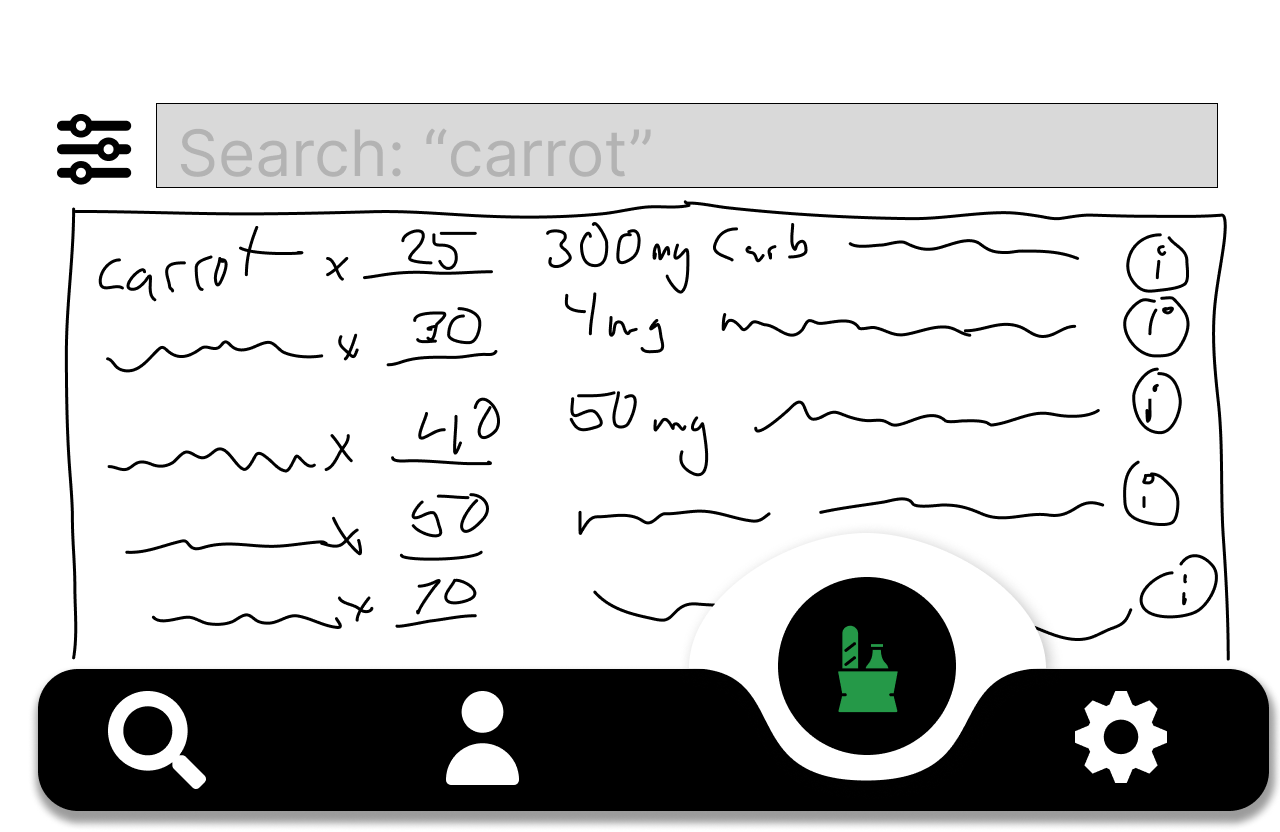 Search: “carrot”
carrot x 25 300mg Carb i
x 30 4mg i
x 40 50 mg i
x 50 i
x 70 i